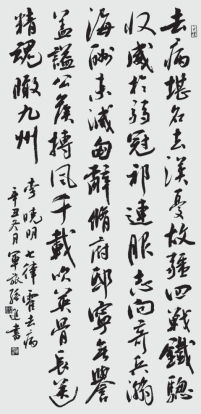 去病堪名去漢憂故疆四戰鐵驄
收威於弱冠祁連服志向奇兵瀚
海酬未滅匈辭脩府邸寧無譽
蓋謚公侯搏風千載吹英骨長送
精魂瞰九州
李曉明七律霍去病
辛丑冬月軍旅書